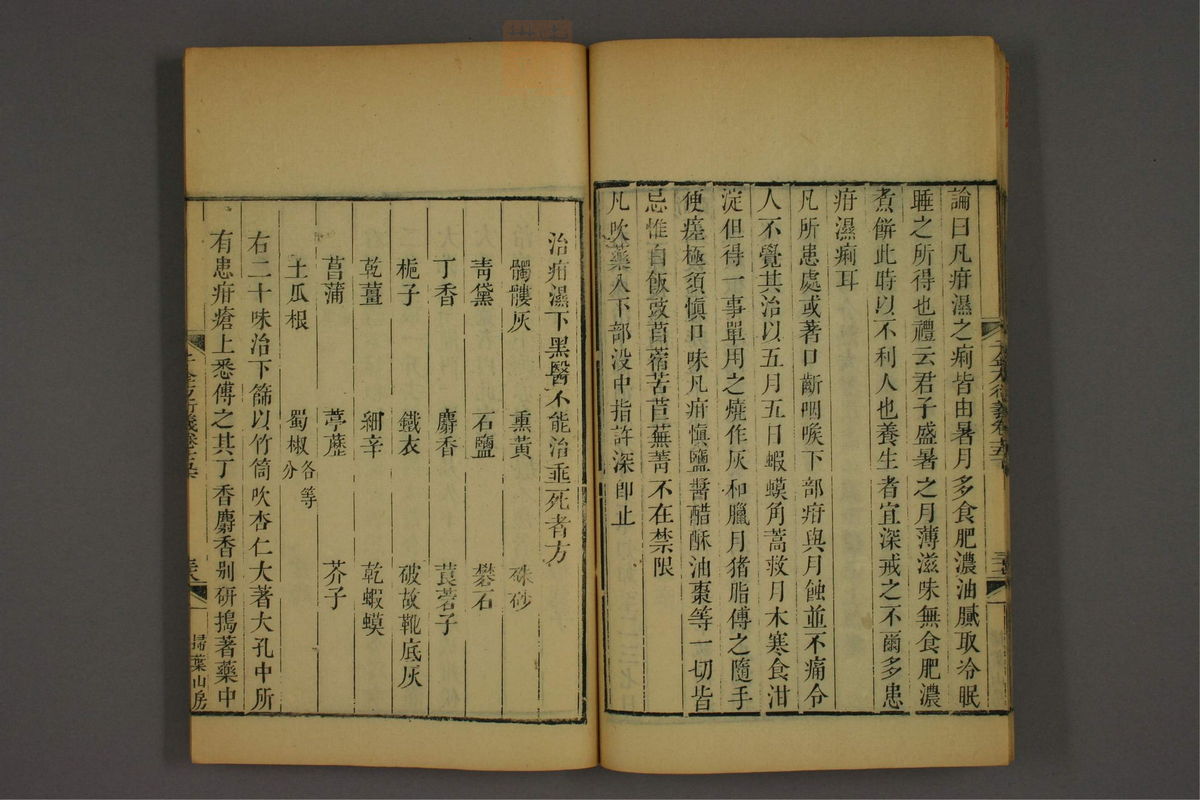 論曰凡疳濕之痢皆由暑月多食肥濃油膩取冷眠
睡之所得也禮云君子盛暑之月薄滋味無食肥濃
煮餅此時以不利人也養生者宜深戒之不爾多患
疳濕痢耳
凡所患處或著口齗咽喉下部疳與月蝕並不痛令
人不覺其治以五月五日蝦蟆角蒿救月木寒食泔
淀但得一事單用之燒作灰和臘月猪脂傅之隨手
便瘥極須慎口味凡疳慎鹽醬醋酥油棗等一切皆
忌惟白飯豉苜蓿苦苣蕪菁不在禁限
凡吹藥入下部没中指許深即止
治疳濕下黑醫不能治垂死者方
髑髏灰 熏黃 硃砂
青黛 石鹽 礬石
丁香 麝香 莨菪子
梔子 鐵衣 破故靴底灰
乾薑 細辛 乾蝦蟆
菖蒲 葶藶 芥子
土瓜根 蜀椒各等分
右二十味治下篩以竹筒吹杏仁大著大孔中所
有患疳瘡上悉傅之其丁香麝香别研搗著藥中
掃葉山房